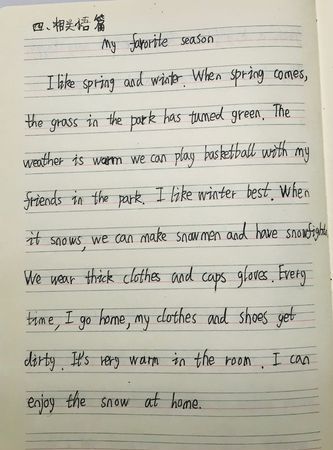 四、相关语篇
My favorite season
I like spring and winter. When spring comes,
the grass in the park has turned green. The
weather is warm we can play basketball with my
friends in the park. I like winter best. When
it snows, we can make snowmen and have snowfights
We wear thick clothes and caps gloves. Every
time, I go home, my clothes and shoes get
dirty. It's very warm in the room. I can
enjoy the snow at home.